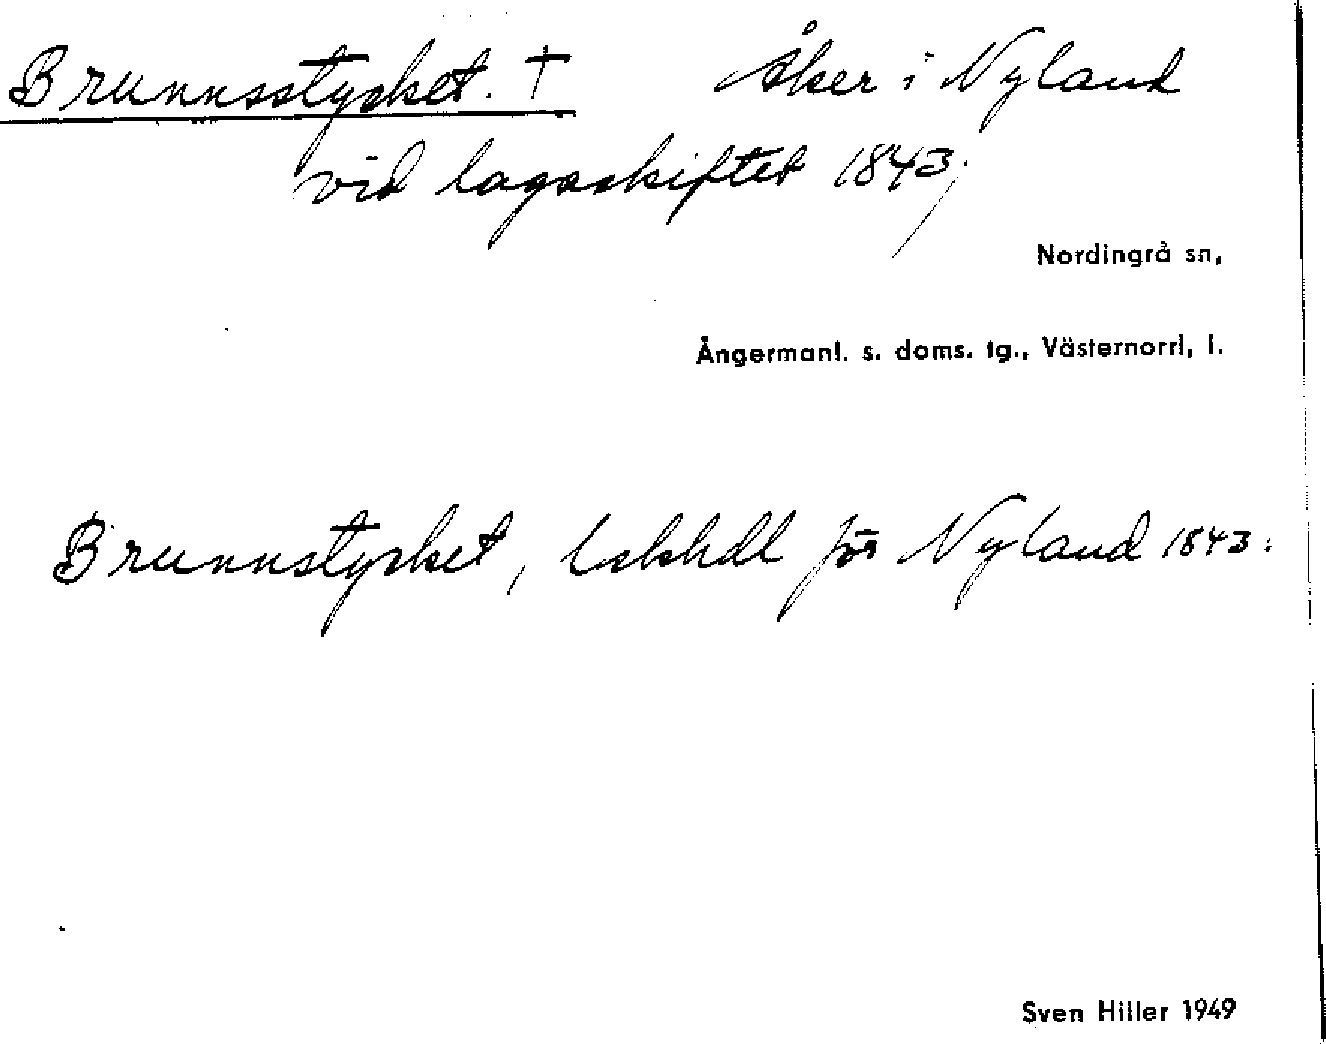 Brunnsstycket. † Åker i Nyland
vid lagaskiftet 1843;
Nordingrå sn,
Ångermanl. s. doms. tg., Västernorrl, l.
Brunnstycket, för Nyland 1843:
Sven Hiller 1949